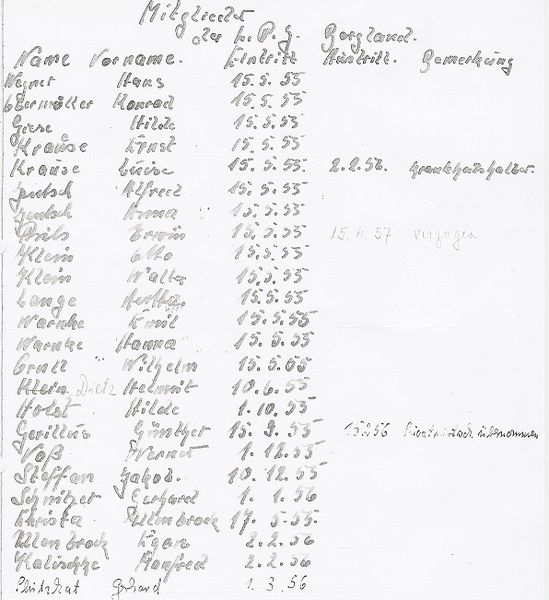 Mitglieder
der L. P. G. Bergland.
Name Vorname. Eintritt Austritt. Bemerkung
Wegner Hans 15.5.55
Obermüller Konrad 15.5.55
Giese Hilde 15.5.55
Krause Ernst 15.5.55
Krause Luise 15.5.55. 2.2.56. Krankheitshalber.
Jentsch Alfred 15.5.55
Jentsch Anna 15.5.55
Erwin 15.5.55 15.4.57 verzogen
Klein Otto 15.5.55
Klein Walter 15.5.55
Lange Hertha 15.5.55
Warnke Emil 15.5.55
Warnke Hanna 15.5.55
Wilhelm 15.5.55
Klein Dietz Helmut 10.6.55
Holst Hilde 1.10.55
Gerillus Günther 15.9.55 15.2.56
Voß Werner 1.12.55
Steffan Jakob. 10.12.55
Schnitzer Gerhard 1.1.56
Christa Ullenbrock 17.5.55.
Ullenbrock Egon 2.2.56
Kalischke Manfred 2.2.56
Gerhard 1.3.56